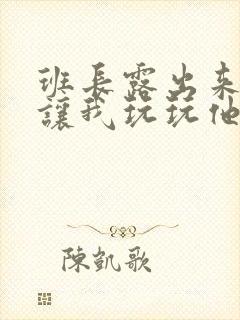 班長露出來
讓我玩玩他
陳凱歌